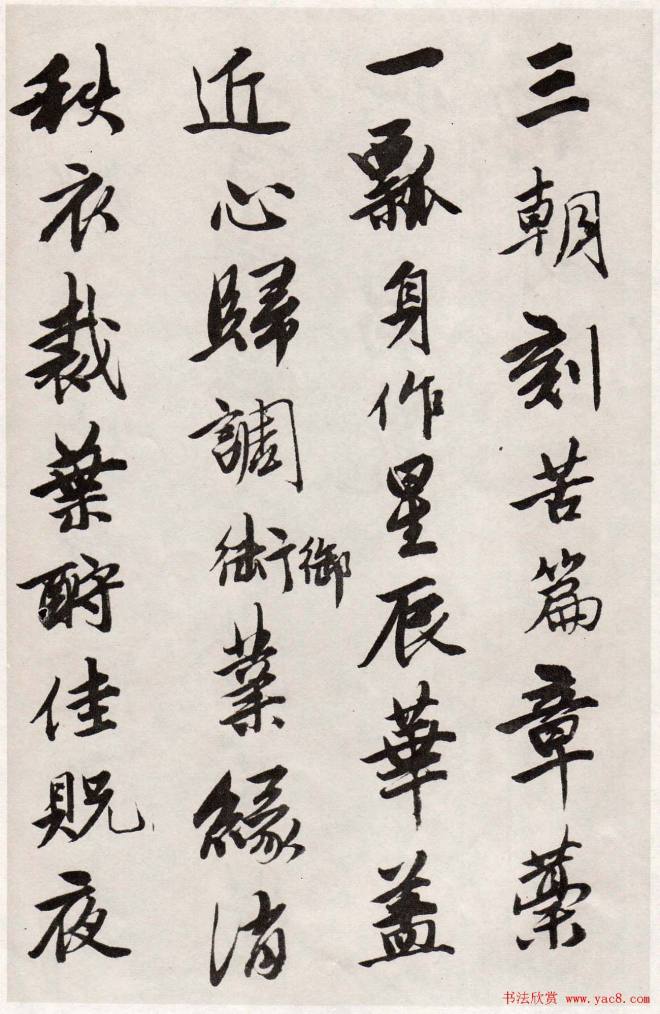 三朝刻苦篇章藁
一瓢身作星辰華蓋
近心歸調御業緣消
秋衣裁葉酧佳貺夜
书法欣赏 www.yac8.com